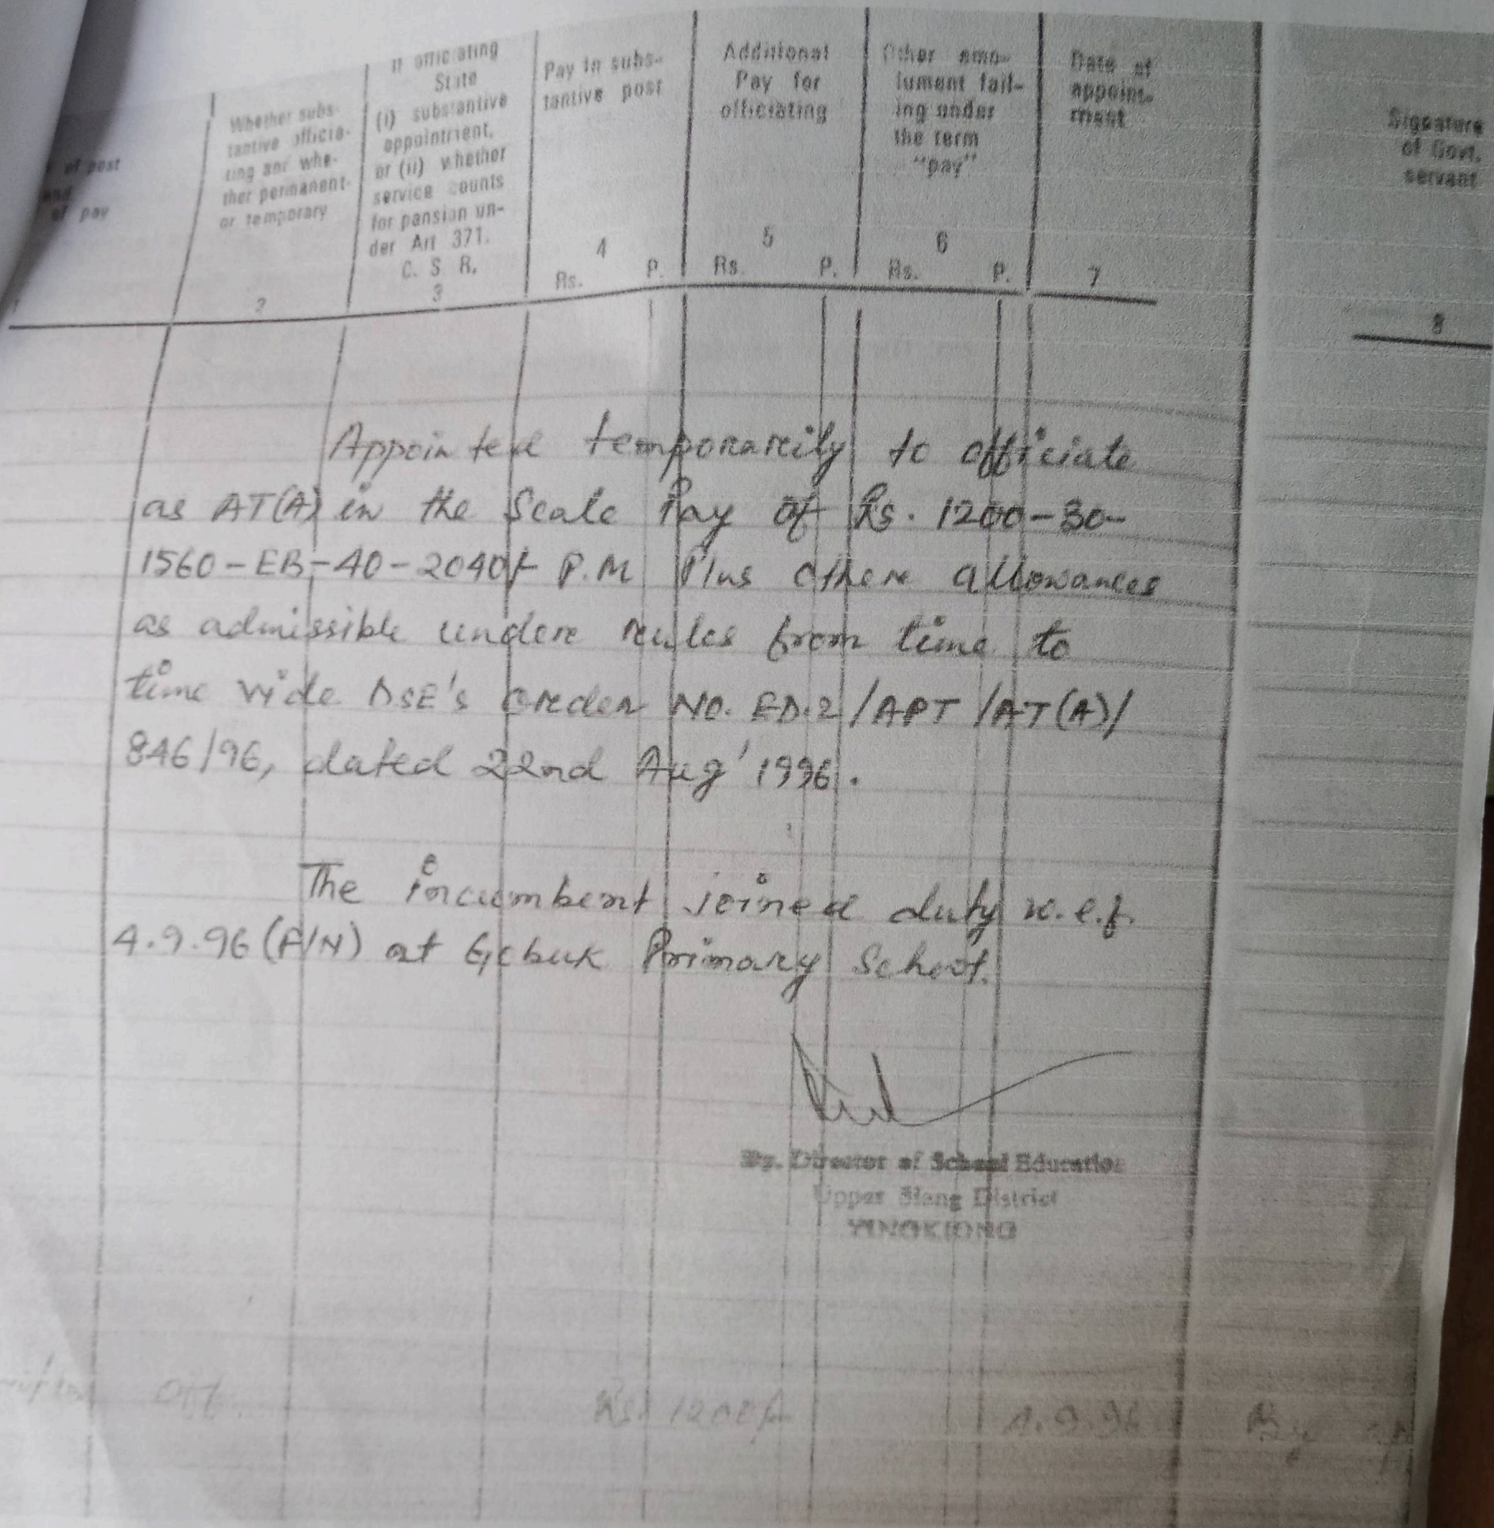 of post
and
of pay
1
Whether subs-
tantive officia-
ting and whe-
ther permanent-
or temporary
2
If officiating
State
(i) substantive
appointrient,
or (ii) whether
service counts
for pansion un-
der Art 371.
C. S. R.
3
Pay in subs-
tantive post
4
Rs. P.
Additional
Pay for
officiating
5
Rs. P.
Other emo-
lument fall-
ing under
the term
"pay"
6
Rs. P.
Date of
appoint-
ment
7
Signature
of Govt.
servant
8
Appointed temporarily to officiate
as AT(A) in the Scale Pay of Rs. 1200-30-
1560-EB-40-2040/- P.M Plus other allowances
as admissible under rules from time to
time vide DSE's order NO. ED.2/APT/AT(A)/
846/96, dated 22nd Aug' 1996.
The incumbent joined duty w.e.f.
4.9.96 (F/N) at Gobuk Primary School.
Dy. Director of School Education
Upper Siang District
YINGKIONG
Off. Rs. 1200/- 4.9.96